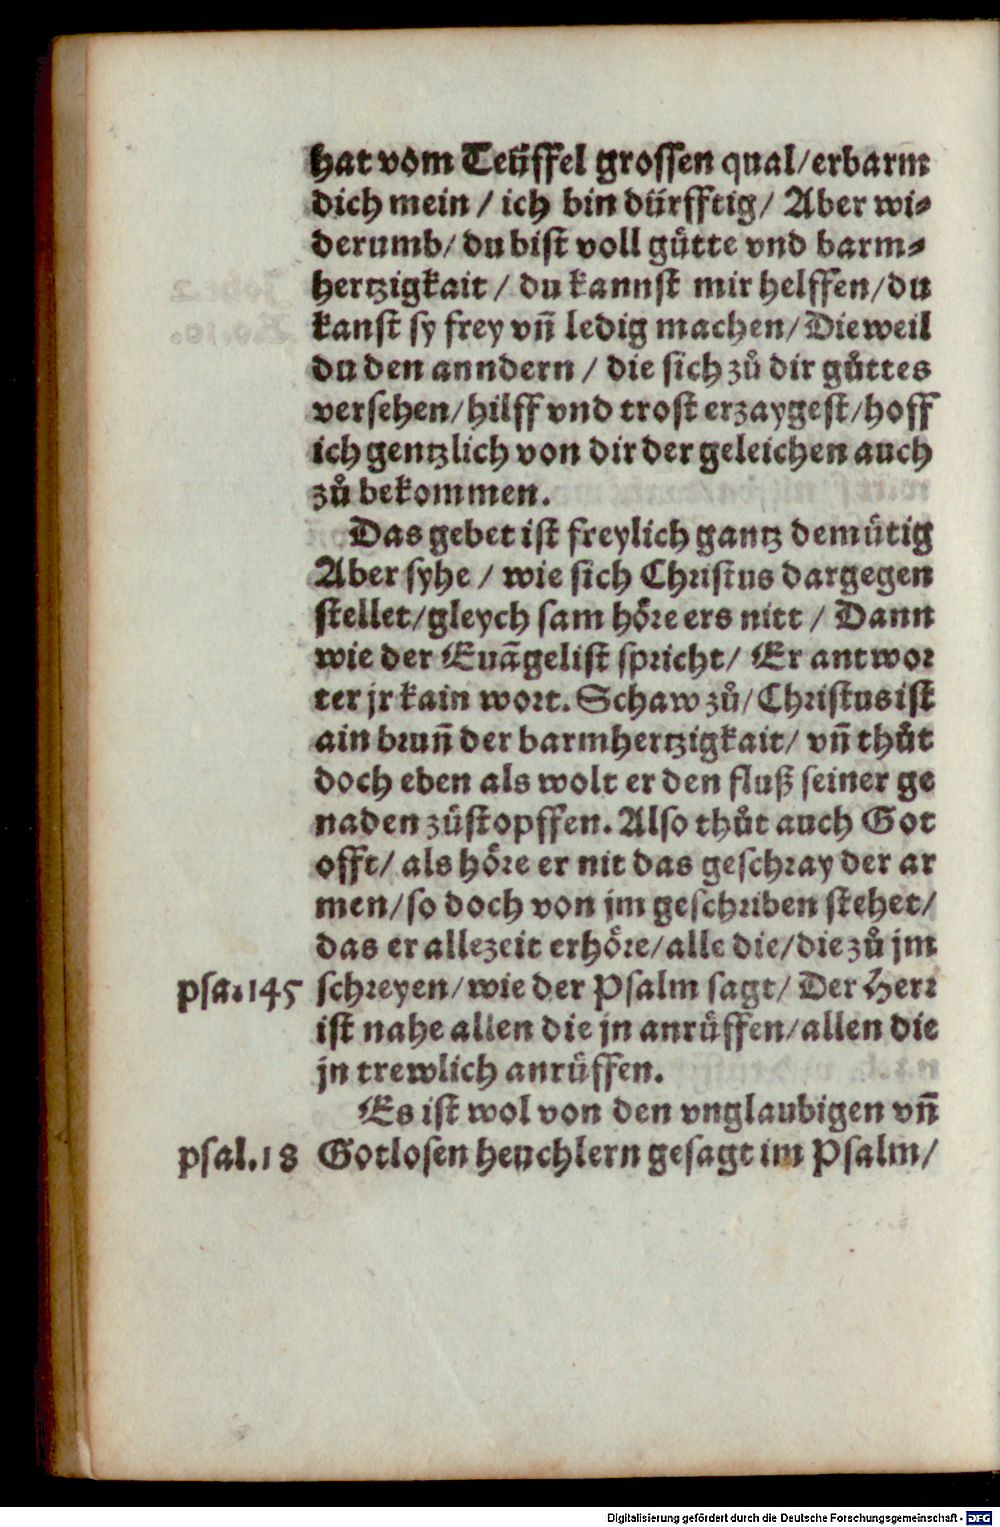 hat vom Teüffel grossen qual/erbarm
dich mein / ich bin dürfftig/ Aber wi⸗
derumb/ du bist voll guͤtte vnd barm⸗
hertzigkait / du kannst mir helffen/du
kanst sy frey vñ ledig machen/ Dieweil
du den anndern / die sich zuͦ dir guͦttes
versehen/hilff vnd trost erzaygest/hoff
ich gentzlich von dir der geleichen auch
zuͦ bekommen.
Das gebet ist freylich gantz demuͤtig
Aber syhe / wie sich Christus dargegen
stellet/gleych sam hoͤre ers nitt / Dann
wie der Euãgelist spricht/ Er antwor
ter jr kain wort. Schaw zuͦ/ Christus ist
ain brunñ der barmhertzigkait/ vñ thuͦt
doch eben als wolt er den fluß seiner ge
naden zuͦstopffen. Also thuͦt auch Got
offt/ als hoͤre er nit das geschray der ar
men/so doch von jm geschriben stehet/
das er allezeit erhoͤre/alle die/die zuͦ jm
psa.145 schreyen/wie der Psalm sagt/ Der Herr
ist nahe allen die jn anruͤffen/allen die
jn trewlich anruͤffen.
Es ist wol von den vnglaubigen vñ
psal.18 Gotlosen heuchlern gesagt im Psalm/
Digitalisierung gefördert durch die Deutsche Forschungsgemeinschaft - DFG